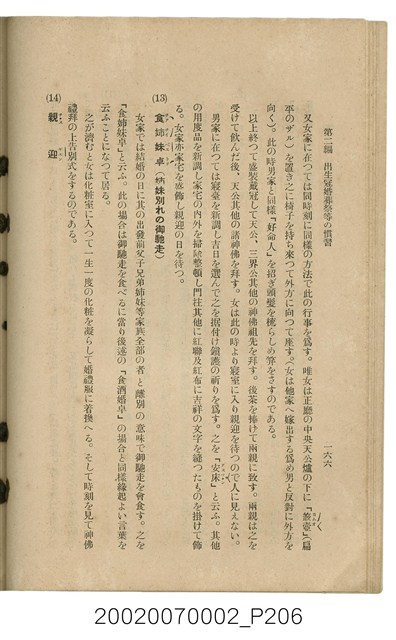 第二編　出生冠婚葬祭等の慣習
一六六
又女家に在つては同時刻に同樣の方法で此の行事を爲す。唯女は正廳の中央天公爐の下に「簸壺」(扁
平のザル)を置き之に椅子を持ち來つて外方に向つて座す(女は他家へ嫁出する爲め男と反對に外方を
向く)。此の時男家と同樣「好命人」を招ぎ頭髮を梳らしめ笄をさすのである。
以上終つて盛裝戴冠して天公、三界公其他の神佛祖先を拜す。後茶を捧げて兩親に致す。兩親は之を
受けて飮んだ後、天公其他の諸神佛を拜す。女は此の時より寢室に入り親迎を待つので人に見えない。
男家に在つては寢臺を新調し吉日を選んで之を据付け鎭護の祈りを爲す。之を「安床」と云ふ。其他
の用度品を新調し家宅の內外を掃除整頓し門柱其他に紅聯及紅布に吉祥の文字を縫つたものを掛けて飾
る。女家亦家宅を盛飾し親迎の日を待つ。
(13)　食姉妹卓(姉妹別れの御馳走)
女家では結婚の日に其の出發前父子兄弟姉妹等家族全部の者と離別の意味で御馳走を會食す。之を
「食姉妹卓」と云ふ。此の場合は御馳走を食べるに當り後述の「食酒婚卓」の場合と同樣緣起よい言葉を
云ふことになつて居る。
(14)　親迎
之が濟むと女は化粧室に入つて一生一度の化粧を凝らして婚禮服に着換へる。そして時刻を見て神佛
禮拜の上告別式をするのである。
20020070002_P206